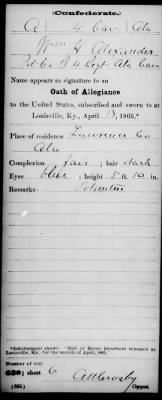 (Confederate.)
A 4 Cav Ala
Wm H Alexander
Pvt Co B 4 Regt Ala Cav
Name appears as signature to an
Oath of Allegiance
to the United States, subscribed and sworn to at
Louisville, Ky., April 18, 1865.*
Place of residence Lawrence Co
Ala
Complexion fair; hair dark
Eyes blue; height 5 ft. 10 in.
Remarks: Volunteer
*Indorsement shows: "Roll of Rebel Deserters released at
Louisville, Ky. for the month of April, 1865.
Number of roll:
sheet 6
(665) Copyist.